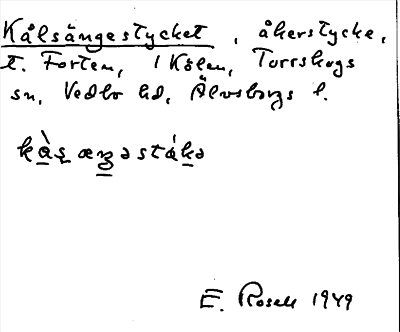 Kålsängestycket, åkerstycke,
t. Forten, i Kölen, Torrskogs
sn, Vedbo hd, Älvsborgs l.
E. Rosell 1949